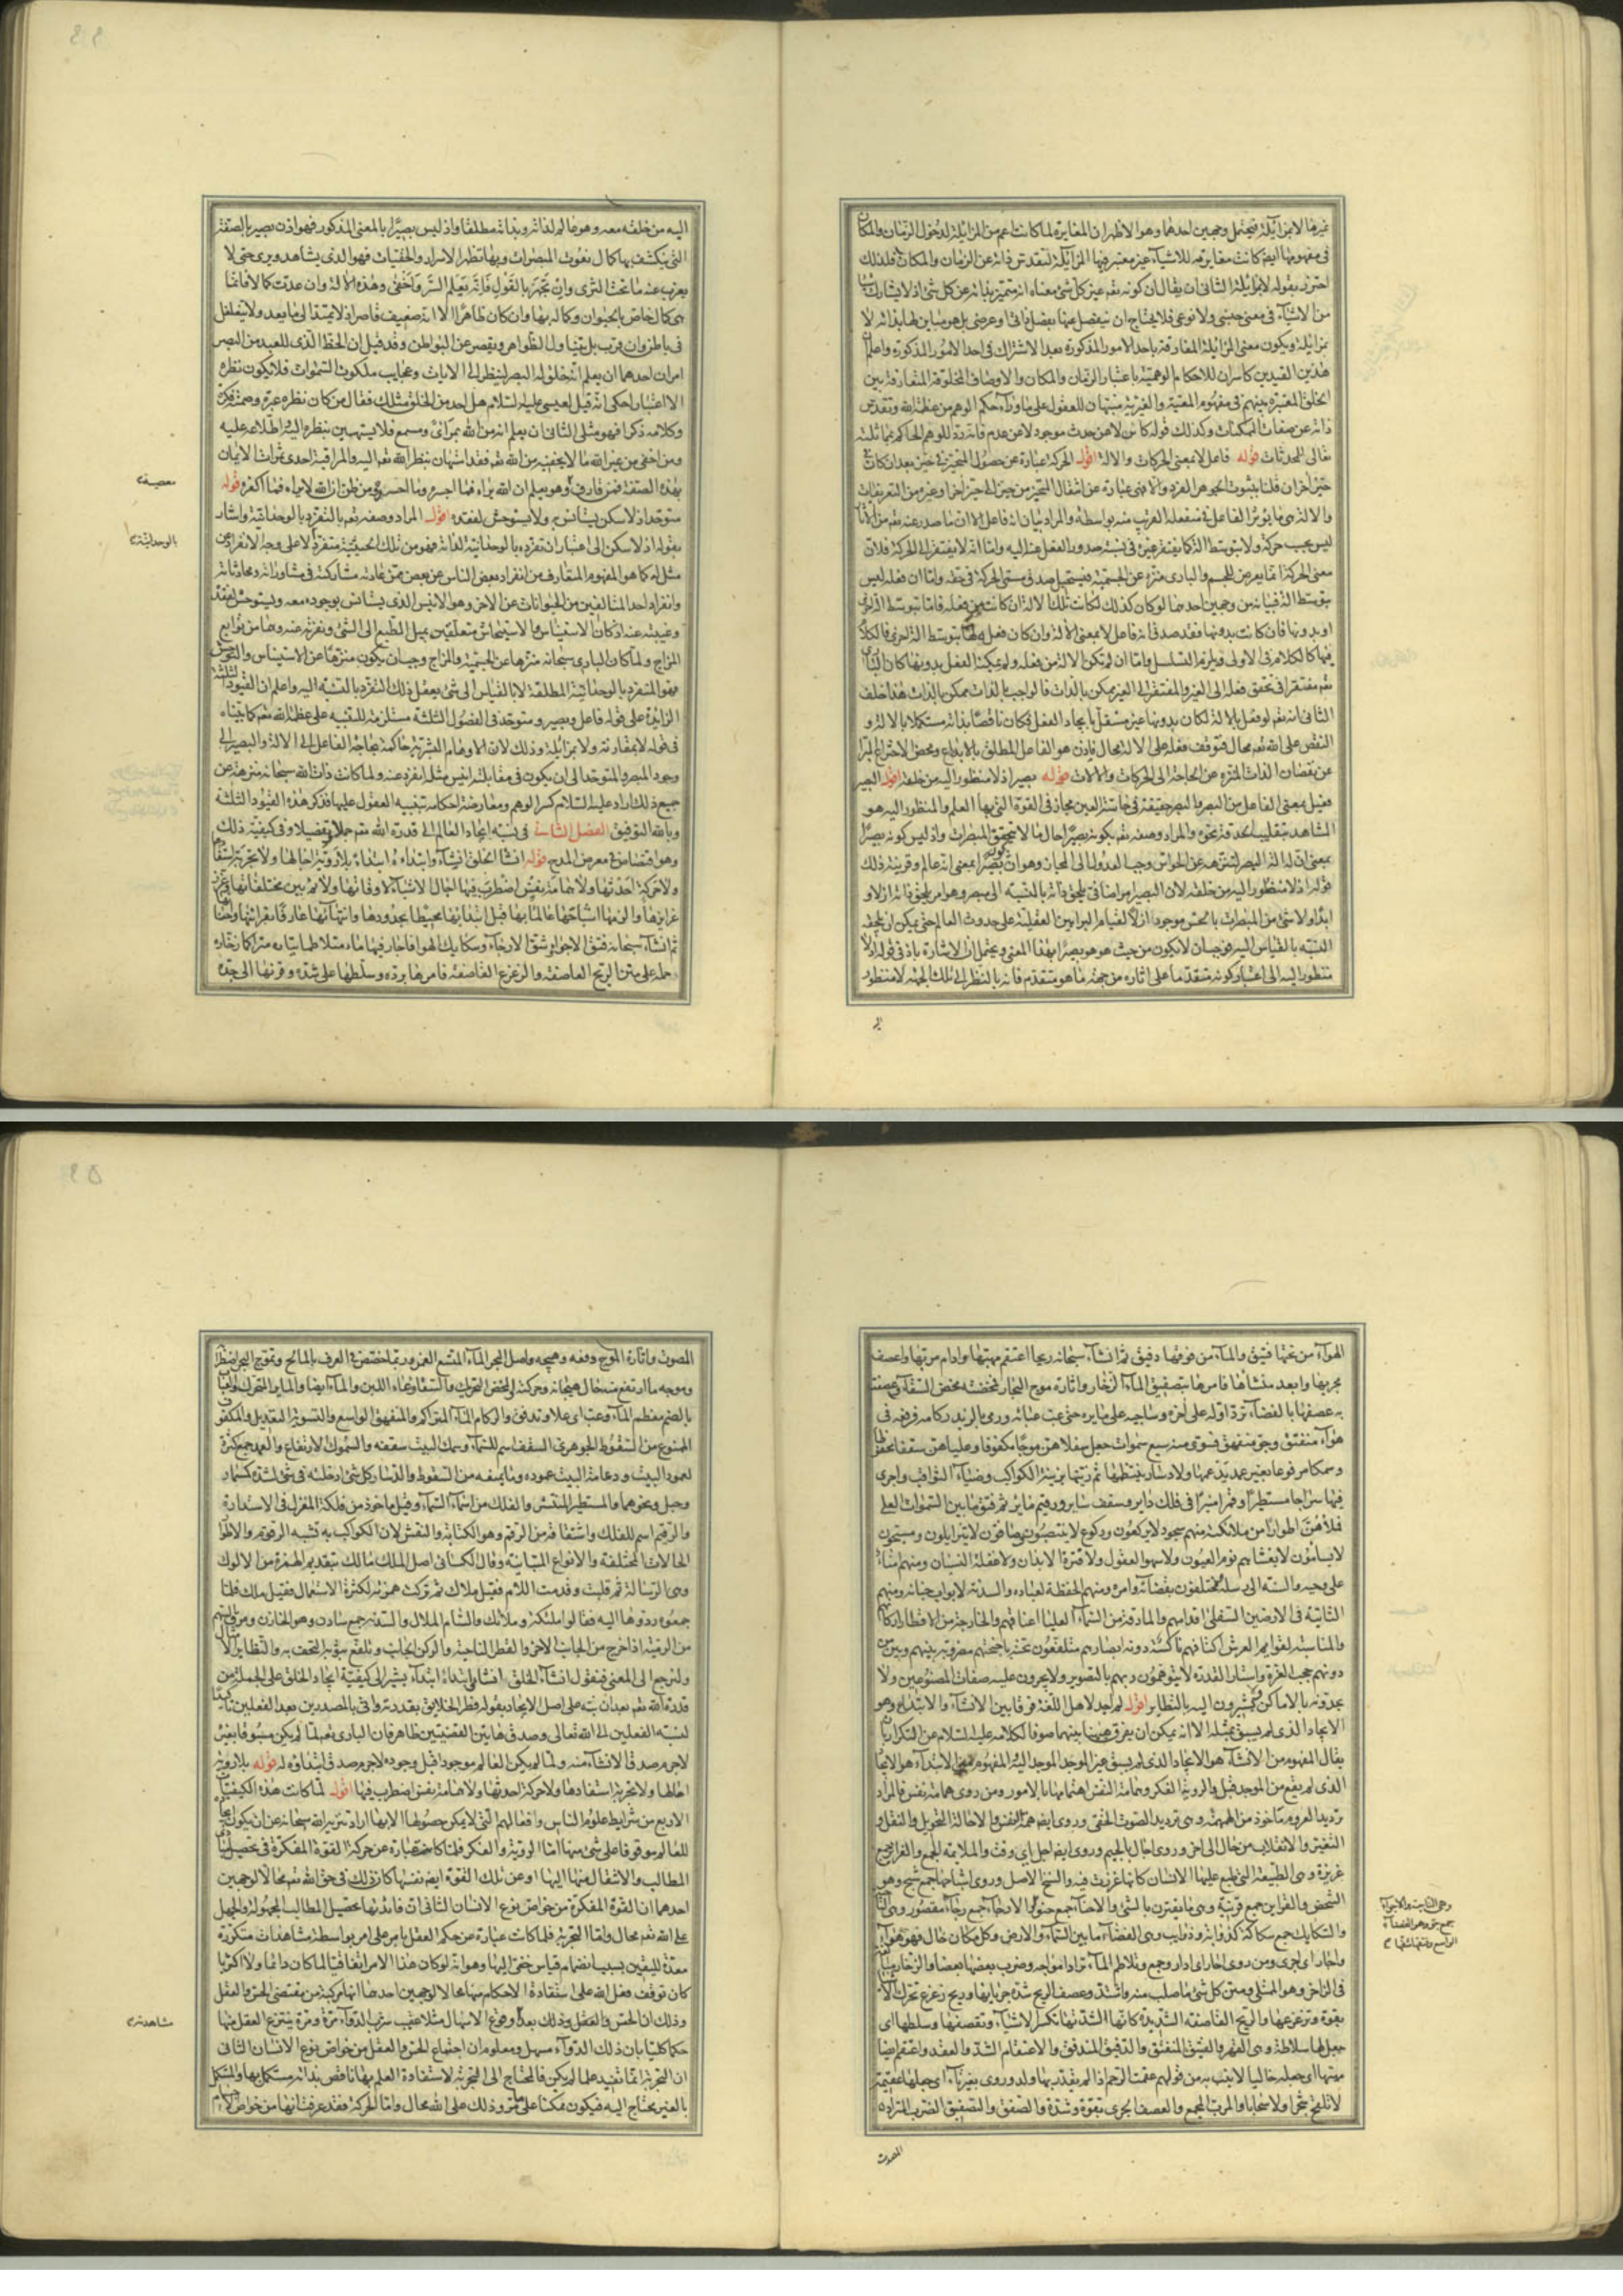 غيرها لا بمزايلة فيحتمل وجهين احدهما وهو الاظهر ان المغايرة لما كانت اعم من المزايلة لدخول الزمان والمكان
في مفهومها ايضا كانت مغايرته للاشياء غير معتبر فيها المزايلة لتقدس ذاته عن الزمان والمكان فلذلك
احترز بقوله لا بمزايلة الثاني ان يقال ان كونه تعم غير كل شئ معناه انه متميز بذاته عن كل شئ اذ لا يشارك شيئا
من الاشياء في معنى جنسي ولا نوعي فلا يحتاج ان ينفصل عنها بفصل ذاتي او عرضي بل هو مباين لها بذاته لا
بمزايلة ويكون معنى المزايلة المفارقة باحد الامور المذكورة بعد الاشتراك في احد الامور المذكورة واعلم ان
هذين القيدين كاسران للاحكام الوهمية باعتبار الزمان والمكان والاوصاف المخلوقة المتعارفة بين
الخلق المعتبرة بينهم في مفهوم المعية والغيرية منبهان للعقول على ما وراء حكم الوهم من عظمة الله وتقدس
ذاته عن صفات الممكنات وكذلك قوله كائن لا عن حدث موجود لا عن عدم فانه رد للوهم الحاكم بمماثلته
تعالى للمحدثات قوله فاعل لا بمعنى الحركات والالة اقول الحركة عبارة عن حصول المتحيز في حيز بعد ان كان في
حيز اخر ان قلنا بثبوت الجوهر الفرد والا فهي عبارة عن انتقال المتحيز من حيز الى حيز اخر او غيره من التعريفات
والالة هي ما يؤثر الفاعل في منفعله القريب منه بواسطته والمراد بيان انه فاعل الا ان ما صدر عنه تعم من الاثار
ليس بحسب حركة ولا بتوسط الة كما يفتقر غيره في نسبة صدور الفعل عنه اليه واما انه لا يفتقر الى الحركة فلان
معنى الحركة انما يعرض للجسم والباري منزه عن الجسمية فيستحيل صدق مسمى الحركة في حقه واما ان فعله ليس
بتوسط الة فبيانه من وجهين احدهما لو كان كذلك لكانت تلك الالة ان كانت من فعله فاما بتوسط الة اخرى
او بدونها فان كانت بدونها فقد صدق انه فاعل لا بمعنى الالة وان كان فعله لها بتوسط الة اخرى فالكلام
فيها كالكلام في الاولى ويلزم التسلسل واما ان لم تكن الالة من فعله ولم يمكنه الفعل بدونها كان الباري
تعم مفتقرا في تحقق فعله الى الغير والمفتقر الى الغير ممكن بالذات فالواجب بالذات ممكن بالذات هذا خلف
الثاني انه تعم لو فعل بالالة لكان بدونها غير مستقل بايجاد الفعل فكان ناقصا بذاته مستكملا بالالة و
النقص على الله تعم محال فتوقف فعله على الالة محال فاذن هو الفاعل المطلق بالابداع ومحض الاختراع المبرا
عن نقصان الذات المنزه عن الحاجة الى الحركات والالات قوله بصير اذ لا منظور اليه من خلقه اقول البصير
فعيل بمعنى الفاعل من البصر والبصر حقيقة في حاسة العين مجاز في القوة التي بها العلم والمنظور اليه هو
المشاهد بتقليب الحدقة نحوه والمراد وصفه تعم بكونه بصيرا حال ما لا يتحقق المبصرات واذ ليس كونه بصيرا
بمعنى ان له الة البصر لتنزهه عن الحواس وجب العدول الى المجاز وهو ان يكون بصيرا بمعنى انه عالم وقرينة ذلك
قوله اذ لا منظور اليه من خلقه لان البصير من اضافي يلحق ذاته بالنسبة الى مبصر وهو امر يلحق ذاته ازلا و
ابدا ولا شئ من المبصرات بالحس موجود ازلا لقيام البراهين العقلية على حدوث العالم حتى يمكن ان يلحقه
النسبة بالقياس اليه فوجب ان لا يكون من حيث هو هو بصيرا بهذا المعنى ويحتمل ان الاشارة باذ في قوله اذ لا
منظور اليه الى اعتبار كونه متقدما على اثاره من جهة ما هو متقدم فانه بالنظر الى تلك الجهة لا منظور
اليه
اليه من خلقه معه وهو عالم لذاته وبذاته مطلقا واذ ليس بصيرا بالمعنى المذكور فهو اذن بصير بالصفة
التي ينكشف بها كمال نعوت المبصرات وبها تظهر الاسرار والخفيات فهو الذي يشاهد ويرى حتى لا
يعزب عنه ما تحت الثرى وان تجهر بالقول فانه يعلم السر واخفى وهذه الالة وان عدت كمالا فانما
هي كمال خاص بالحيوان وكماله بها وان كان ظاهرا الا انه ضعيف قاصر اذ لا يمتد الى ما بعد ولا يتغلغل
في باطن وان قرب بل يتناول الظواهر ويقصر عن البواطن وقد قيل ان الحظ الذي للعبد من البصر
امران احدهما ان يعلم انه خلق له البصر لينظر الى الايات وعجايب ملكوت السموات فلا يكون نظره
الا اعتبارا حكي انه قيل لعيسى عليه السلام هل احد من الخلق مثلك فقال من كان نظره عبرة وصمته فكرة
وكلامه ذكرا فهو مثلي الثاني ان يعلم انه من الله بمراى ومسمع فلا يستهين بنظره اليه واطلاعه عليه
ومن اخفى من غير الله ما لا يخفيه من الله تعم فقد استهان بنظر الله تعم اليه والمراقبة احدى ثمرات الايمان
بهذه الصفة فمن قارف وهو يعلم ان الله يراه فما اجسره وما اخسره ومن ظن ان الله لا يراه فما اكفره قوله
معصية
متوحد اذ لا سكن يستانس به ولا يستوحش لفقده اقول المراد وصفه تعم بالتفرد بالوحدانية واشار
بقوله اذ لا سكن الى اعتبار ان تفرده بالوحدانية لذاته فهو من تلك الحيثية متفرد لا على وجه الانفراد عن
بالوحدانية
مثل له كما هو المفهوم المتعارف من انفراد بعض الناس عن بعض ممن عادته مشاركته في مشاوراته ومحادثاته
وانفراد احد المتالفين من الحيوانات عن الاخر وهو الانيس الذي يستانس بوجوده معه ويستوحش لفقده
وغيبته عنه اذ كان الاستيناس والاستيحاش متعلقين بميل الطبع الى الشئ ونفرته عنه وهما من توابع
المزاج ولما كان الباري سبحانه منزها عن الجسمية والمزاج وجب ان يكون منزها عن الاستيناس والتوحش
فهو المتفرد بالوحدانية المطلقة لا بالقياس الى شئ يعقل ذلك التفرد بالنسبة اليه واعلم ان القيود الثلثة
الزايدة على قوله فاعل وبصير ومتوحد في الفصول الثلثة مستلزمة للتنبيه على عظمة الله تعم كما بيناه
في قوله لا بمقارنة ولا بمزايلة وذلك لان الاوهام البشرية حاكمة بحاجة الفاعل الى الالة والبصير الى
وجود المبصر والمتوحد الى ان يكون في مقابلته انيس مثله انفرد عنه ولما كانت ذات الله سبحانه منزهة عن
جميع ذلك اراد عليه السلام كسر الوهم ومعارضة احكامه بتنبيه العقول عليها فذكر هذه القيود الثلثة
وبالله التوفيق الفصل الثاني في نسبة ايجاد العالم الى قدرة الله تعم جملا وتفصيلا وفي كيفية ذلك
وهو اقتصاص في معرض المدح قوله انشا الخلق انشاء وابتداه ابتداء بلا روية اجالها ولا تجربة استفادها
ولا حركة احدثها ولا همامة نفس اضطرب فيها احال الاشياء لاوقاتها ولائم بين مختلفاتها وغرز
غرايزها والزمها اشباحها عالما بها قبل ابتدائها محيطا بحدودها وانتهائها عارفا بقرائنها واحنائها
ثم انشاء سبحانه فتق الاجواء وشق الارجاء وسكايك الهواء فاجار فيها ماء متلاطما تياره متراكما زخاره
حمله على متن الريح العاصفة والزعزع القاصفة فامرها برده وسلطها على شده وقرنها الى حده
الهواء من تحتها فتيق والماء من فوقها دفيق ثم انشاء سبحانه ريحا اعتقم مهبها وادام مربها واعصف
مجريها وابعد منشاها فامرها بتصفيق الماء الزخار واثارة موج البحار فمخضته مخض السقاء وعصفت
به عصفها بالفضاء ترد اوله على اخره وساجيه على مايره حتى عب عبابه ورمى بالزبد ركامه فرفعه في
هواء منفتق وجو منفهق فسوى منه سبع سموات جعل سفلاهن موجا مكفوفا وعلياهن سقفا محفوظا
وسمكا مرفوعا بغير عمد يدعمها ولا دسار ينتظمها ثم زينها بزينة الكواكب وضياء الثواقب واجرى
فيها سراجا مستطيرا وقمرا منيرا في فلك داير وسقف ساير ورقيم ماير ثم فتق ما بين السموات العلى
فملأهن اطوارا من ملائكته منهم سجود لا يركعون وركوع لا ينتصبون وصافون لا يتزايلون ومسبحون
لا يسأمون لا يغشاهم نوم العيون ولا سهو العقول ولا فترة الابدان ولا غفلة النسيان ومنهم امناء
على وحيه والسنة الى رسله ومختلفون بقضائه وامره ومنهم الحفظة لعباده والسدنة لابواب جنانه ومنهم
الثابتة في الارضين السفلى اقدامهم والمارقة من السماء العليا اعناقهم والخارجة من الاقطار اركانهم
والمناسبة لقوايم العرش اكتافهم ناكسة دونه ابصارهم متلفعون تحته باجنحتهم مضروبة بينهم وبين من
دونهم حجب العزة واستار القدرة لا يتوهمون ربهم بالتصوير ولا يجرون عليه صفات المصنوعين ولا
يحدونه بالاماكن ولا يشيرون اليه بالنظاير اقول لم اجد لاهل اللغة فرقا بين الانشاء والابتداء وهو
الايجاد الذي لم يسبق بمثله الا انه يمكن ان يفرق هيهنا بينهما صونا لكلامه عليه السلام عن التكرار بان
يقال المفهوم من الانشاء هو الايجاد الذي لم يسبق غير الموجد الموجد اليه والمفهوم من الابتداء هو الايجاد
الذي لم يقع من الموجد قبل والروية الفكر وهمامة النفس اهتمامها بالامور ومن روى همامة نفس فالمراد
ترديد العزوم ماخوذ من الهمهمة وهي ترديد الصوت الخفي وروي ايضا همة النفس والاحالة التحويل والنقل و
التغيير والانقلاب من حال الى اخر وروي اجال بالجيم وروي ايضا اجل اي وقت والملائمة الجمع والغرايز جمع
غريزة وهي الطبيعة التي طبع عليها الانسان كانها غرزت فيه والسنخ الاصل وروي اشباحها جمع شبح وهو
الشخص والقراين جمع قرينة وهي ما يقترن بالشئ والاحناء جمع حنو والارجاء جمع رجا مقصور وهي الناحية
والسكايك جمع سكاكة كذوابة وذوايب وهي الفضاء ما بين السماء والارض وكل مكان خال فهو هواء
وهي الناحية والاجواء
جمع جو وهو الفضاء
الواسع وفتقها شقها
واجار اي اجرى ومن روى اجار اي ادار وجمع وتلاطم الماء تراد امواجه وضرب بعضها بعضا والزخار مبالغة
في الزاخر وهو الممتلئ ومتن كل شئ ما صلب منه واشتد وعصف الريح شدة جريانها وريح زعزع تحرك الاشياء
بقوة وتزعزعها والريح القاصفة الشديدة كانها لشدتها تكسر الاشياء وتقصفها وسلطها اي
جعل لها سلاطة وهي القهر والفتيق المنفتق والدفيق المندفق والاعتقام الشد والعقد واعتقم ايضا
مهبها اي جعله خاليا لا نبت به من قولهم عقمت الرحم اذا لم يقبلها ولد وروي بغير تاء اي جعلها عقيمة
لا تلقح شجرا ولا سحابا والمرب المجمع والعصف الجري بقوة وشدة والصفق والتصفيق الضرب المترادد
المصوت
المصوت واثارة الموج دفعه وهيجه واصل البحر الماء المتسع الغمر وربما اختص في العرف بالمالح وتموج البحر اضطرابه
وموجه ما ارتفع منه حال هيجانه وحركته والمخض التحريك والسقاء وعاء اللبن والماء ايضا والماير المتحرك والعباب
بالضم معظم الماء وعب اي علا وتدفق والركام الماء المتراكم والمنفهق الواسع والتسوية التعديل والمكفوف
الممنوع من السقوط الجوهري السقف اسم للسماء وسمك البيت سقفه والسموك الارتفاع والعمد جمع كثرة
لعمود البيت ودعامة البيت عموده وما يمنعه من السقوط والدسار كل شئ ادخلته في شئ لشده كمسمار
وحبل ونحوهما والمستطير المنتشر والفلك من اسماء السماء وقيل ماخوذ من فلكة المغزل في الاستدارة
والرقيم اسم للفلك واشتقاقه من الرقم وهو الكتابة والنقش لان الكواكب به تشبه الرقوم والاطوار
الحالات المختلفة والانواع المتباينة وقال الكسائي اصل الملك مالك بتقديم الهمزة من الالوك
وهي الرسالة ثم قلبت وقدمت اللام فقيل ملاك ثم تركت همزته لكثرة الاستعمال فقيل ملك فلما
جمعوه ردوها اليه فقالوا ملئكة وملائك والسام الملال والسدنة جمع سادن وهو الخازن ومرق السهم
من الرمية اذا خرج من الجانب الاخر والقطر الناحية والركن الجانب وتلفع بثوبه التحف به والنظاير الامثال
ولنرجع الى المعنى فنقول انشاء الخلق انشاء وابتداه ابتداء يشير الى كيفية ايجاد الخلق على الجملة عن
قدرة الله تعم بعد ان نبه على اصل الايجاد بقوله فطر الخلايق بقدرته واتى بالمصدرين بعد الفعلين تاكيدا
لنسبة الفعلين الى الله تعالى وصدق هاتين القضيتين ظاهر فان الباري تعم لما لم يكن مسبوقا بغيره
لا جرم صدق الانشاء منه ولما لم يكن العالم موجودا قبل وجوده لا جرم صدق ابتداؤه له قوله بلا روية
اجالها ولا تجربة استفادها ولا حركة احدثها ولا همامة نفس اضطرب فيها اقول لما كانت هذه الكيفيات
الاربع من شرايط علوم الناس وافعالهم التي لا يمكن حصولها الا بها اراد تنزيه الله سبحانه عن ان يكون ايجاده
للعالم موقوفا على شئ منها اما الروية والفكر فلما كانت عبارة عن حركة القوة المفكرة في تحصيل
المطالب والانتقال منها اليها او عن تلك القوة ايضا نفسها كان ذلك في حق الله تعم محالا لوجهين
احدهما ان القوة المفكرة من خواص نوع الانسان الثاني ان فائدتها تحصيل المطالب المجهولة والجهل
على الله تعم محال واما التجربة فلما كانت عبارة عن حكم العقل بامر على امر بواسطة مشاهدات متكررة
معدة لليقين بسبب انضمام قياس خفي اليها وهو انه لو كان هذا الامر اتفاقيا لما كان دائما ولا اكثريا
كان توقف فعل الله على استفادة الاحكام منها محالا لوجهين احدهما انها مركبة من مقتضى الحس والعقل
وذلك ان الحس والعقل وذلك بعد وقوع الاسهال مثلا عقيب شرب الدواء مرة ومرة ينتزع العقل منها
مشاهدته
حكما كليا بان ذلك الدواء مسهل ومعلوم ان اجتماع الحس والعقل من خواص نوع الانسان الثاني
ان التجربة انما تفيد علما لم يكن فالمحتاج الى التجربة لاستفادة العلم بها ناقص بذاته مستكمل بها والمستكمل
بالغير محتاج اليه فيكون ممكنا على ما مر وذلك على الله محال واما الحركة فقد عرفت انها من خواص الاجسام